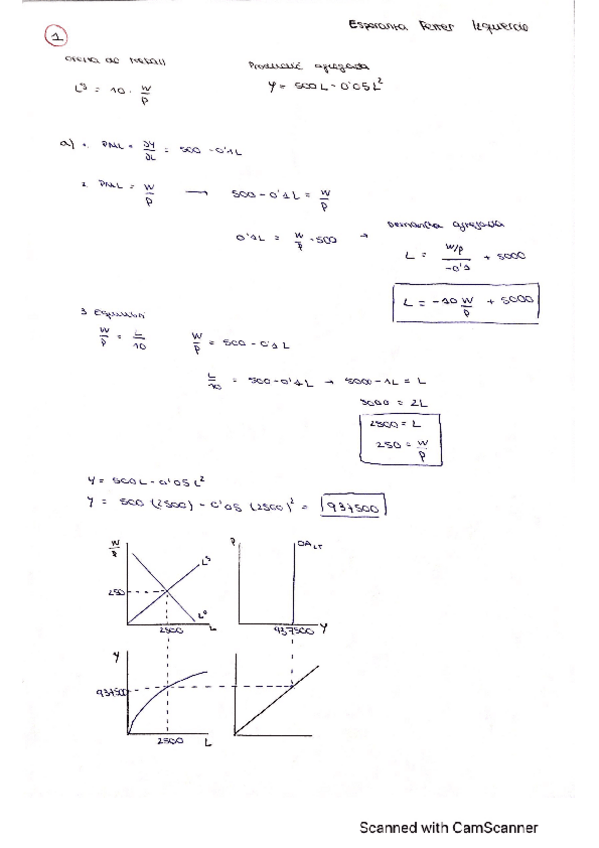 Esperanza Ferrer Izquierdo
1
Oferta de treball
Producció agregada
L^S = 10 · W/P
Y = 500L - 0'05L²
a) 1. PML = ∂Y/∂L = 500 - 0'1L
2. PML = W/P → 500 - 0'1L = W/P
Demanda agregada
0'1L = W/P - 500 → L = W/P / -0'1 + 5000
L = -10 W/P + 5000
3 Equilibri
W/P = L/10 W/P = 500 - 0'1L
L/10 = 500 - 0'1L → 5000 - 1L = L
5000 = 2L
2500 = L
250 = W/P
Y = 500L - 0'05L²
Y = 500 (2500) - 0'05 (2500)² = 937500
W/P L^S P OA LT
250 L^D
2500 L 937500 Y
Y
937500
2500 L
Scanned with CamScanner